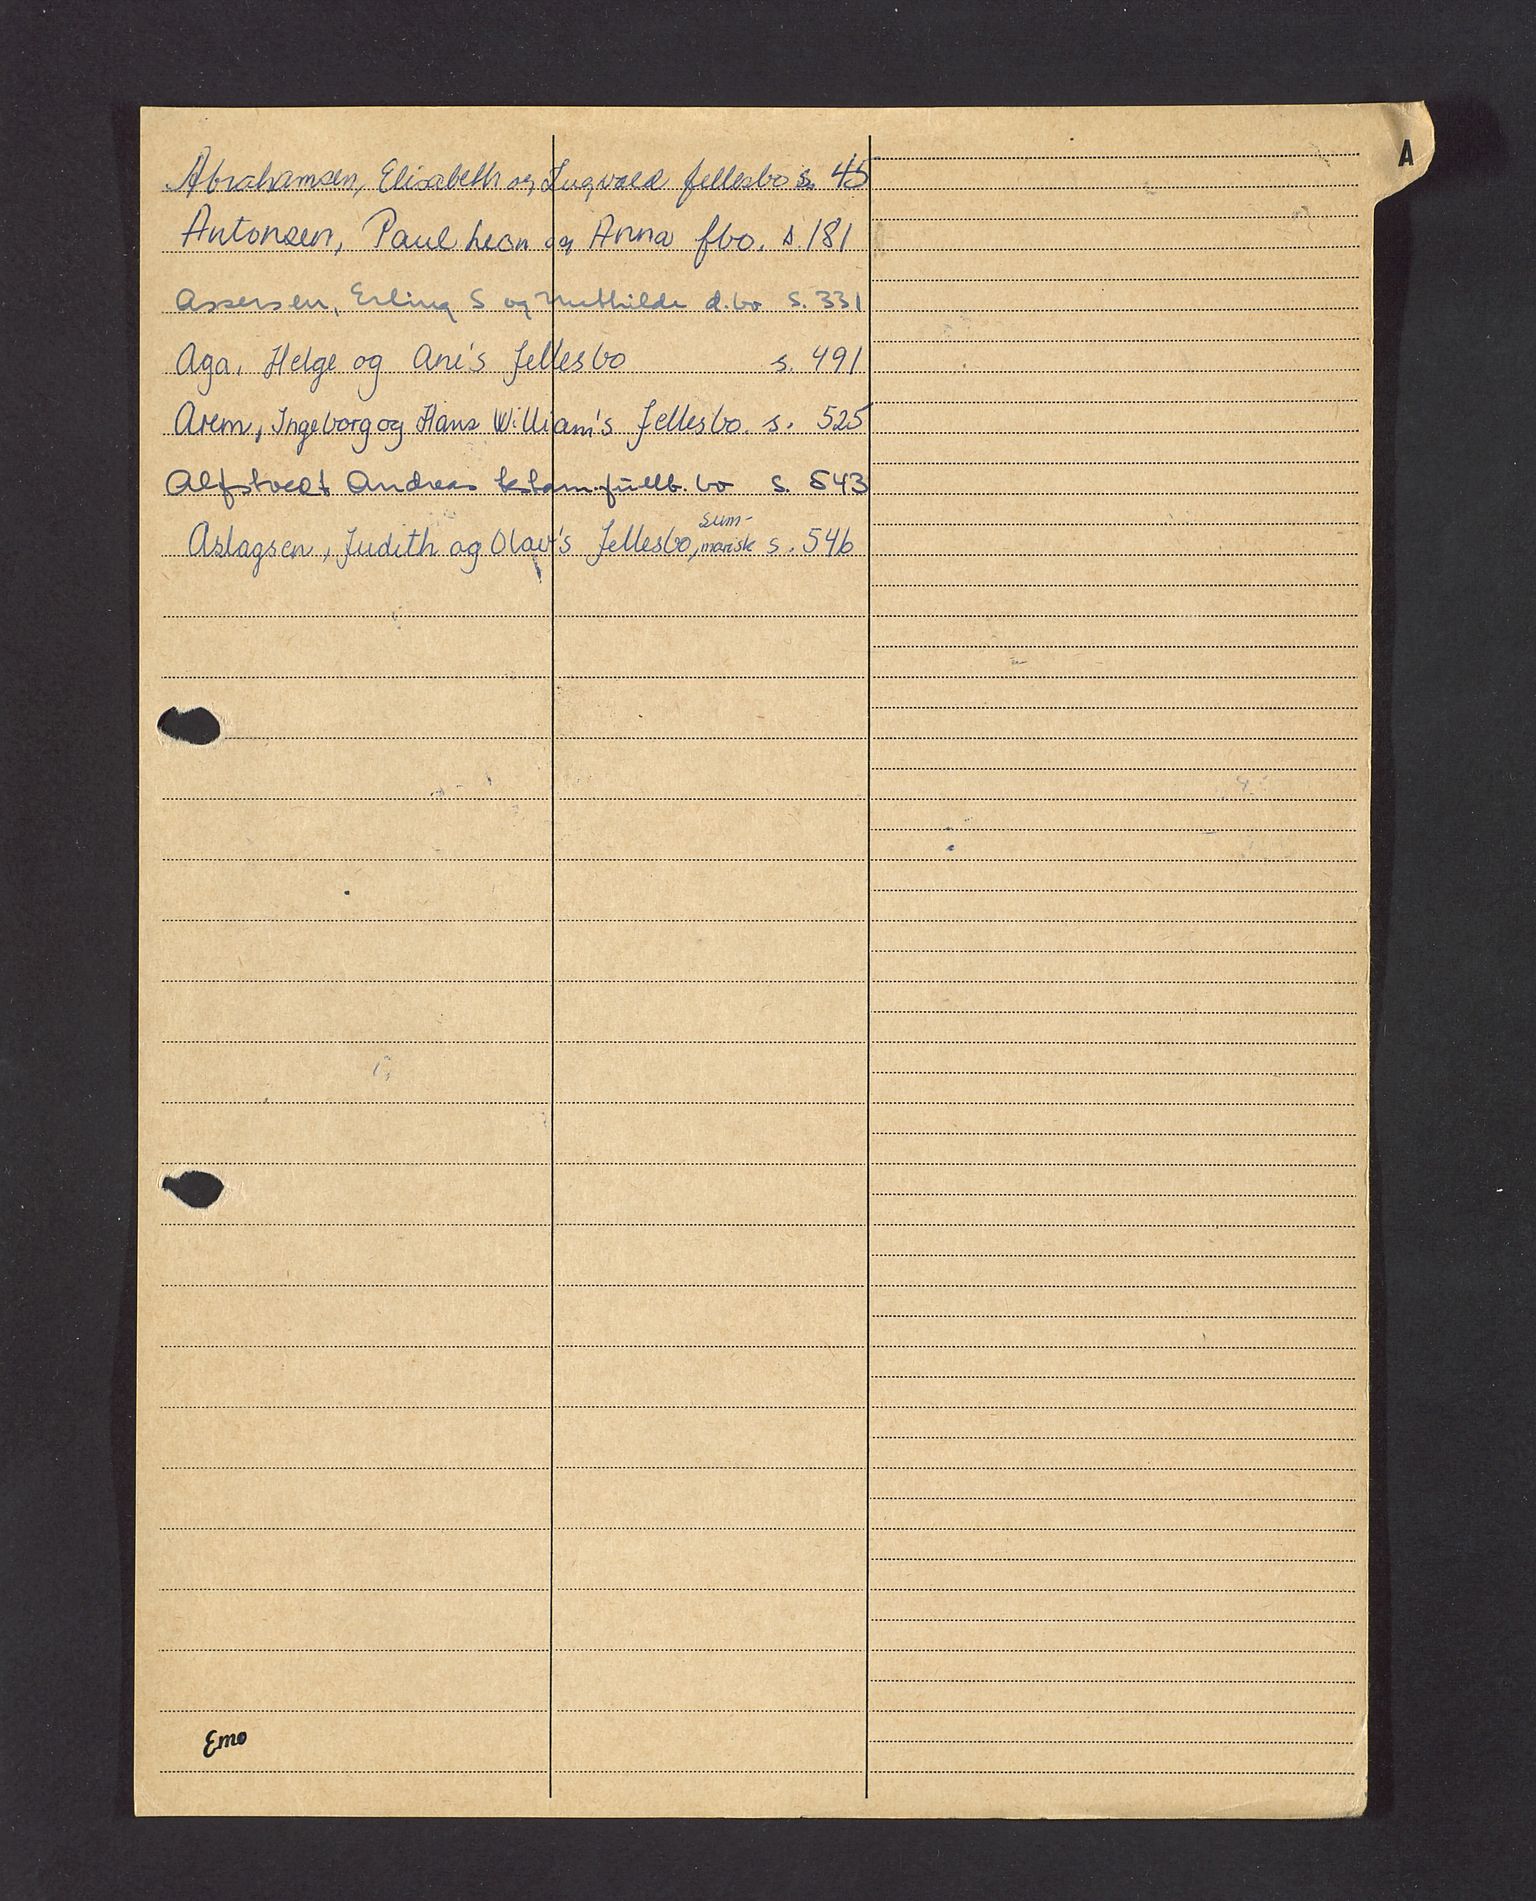 A
Abrahamsen, Elisabeth og Ingvald fellesbo s. 45
Antonsen, Paul Leon og Anna fbo. s. 181
Assersen, Erling S og Mathilde d.bo s. 331
Aga, Helge og Ane's fellesbo s. 491
Arem, Ingeborg og Hans William's fellesbo. s. 525
Alfstvedt Andreas testam.fullb. bo s. 543
Aslagsen, Judith og Olav's fellesbo, summarisk s. 546
Emo